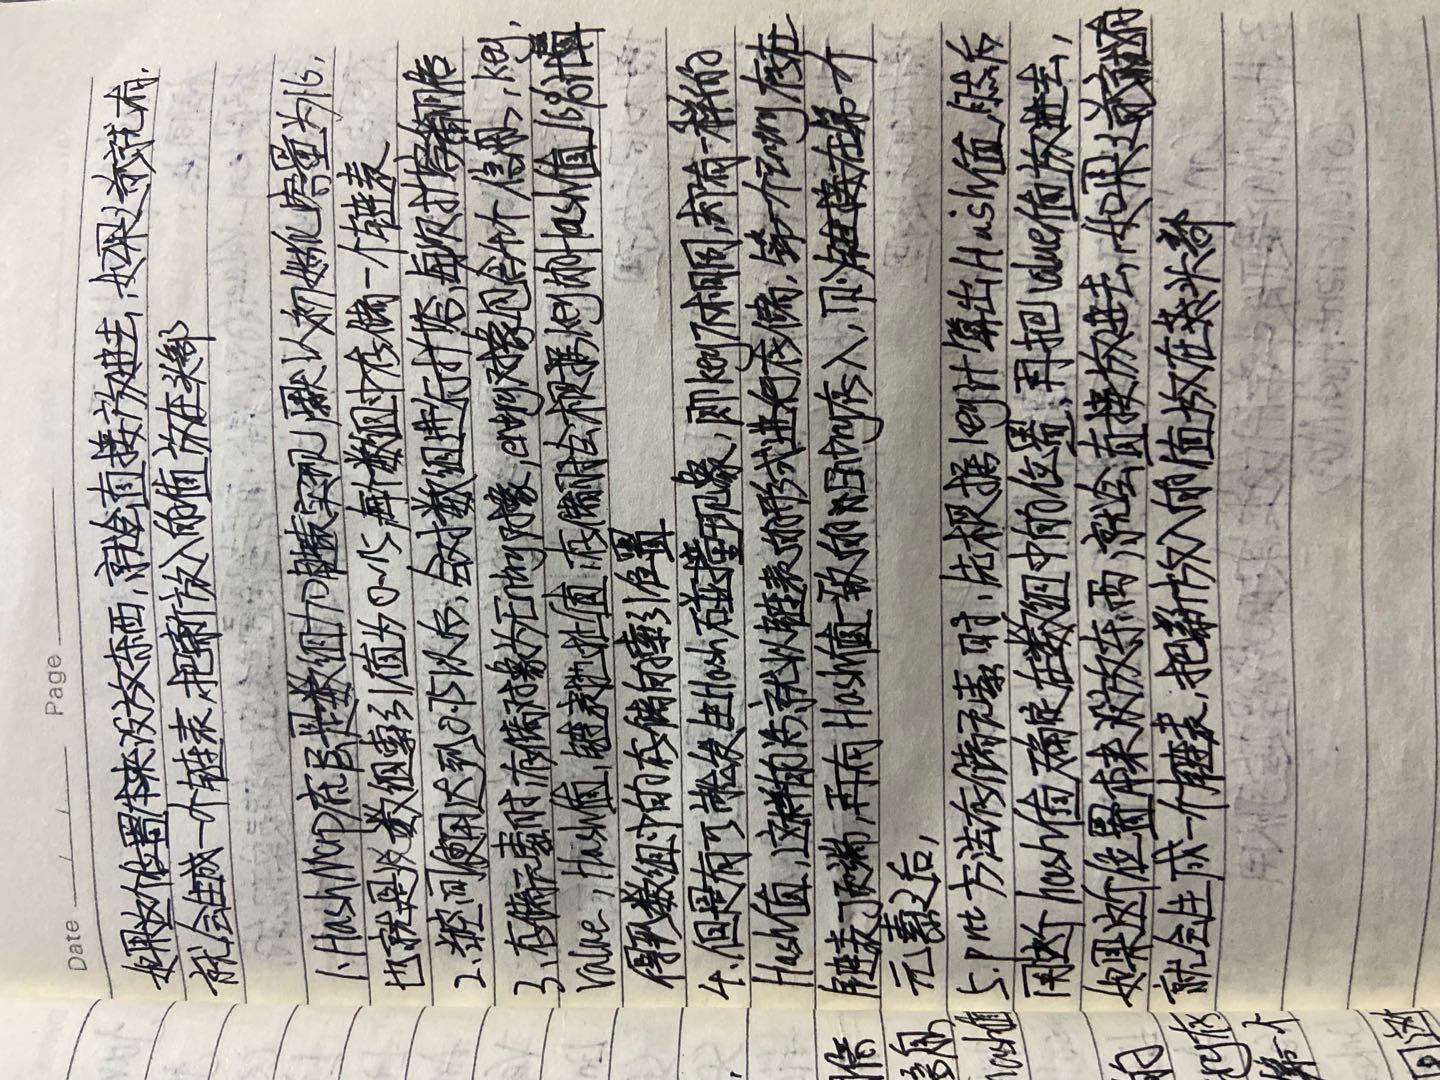 Date / / Page
如果这个位置本来没放东西,就会直接放进去,如果之前就有,
就会生成一个链表,把新放入的值放在头部
1、HashMap底层是数组加链表实现,默认初始化容量为16,
也就是说数组索引值为0~15,每个数组中存储一个链表
2、当空间使用达到0.75以后,会对数组进行扩容,每次扩容翻倍
3、存储元素时,存储对象为Entry对象,entry对象包含4个信息,key,
value,Hash值,链表地址值,存储时会根据key的Hash值16%计算
得到数组中的存储的索引位置
4、但是有可能发生Hash碰撞现象,即key不相同,却有一样的
Hash值,这样的话就以链表的形式进行存储,第一个Entry存在
链表顶端,再有Hash值一致的Entry存入,则链接在第一个
元素之后,
5.put方法存储元素时,先根据key计算出Hash值,然后
用这个hash值确定在数组中的位置,再把value值放进去,
如果这个位置本来没放东西,就会直接放进去,如果之前就有
就会生成一个链表,把新放入的值放在头部